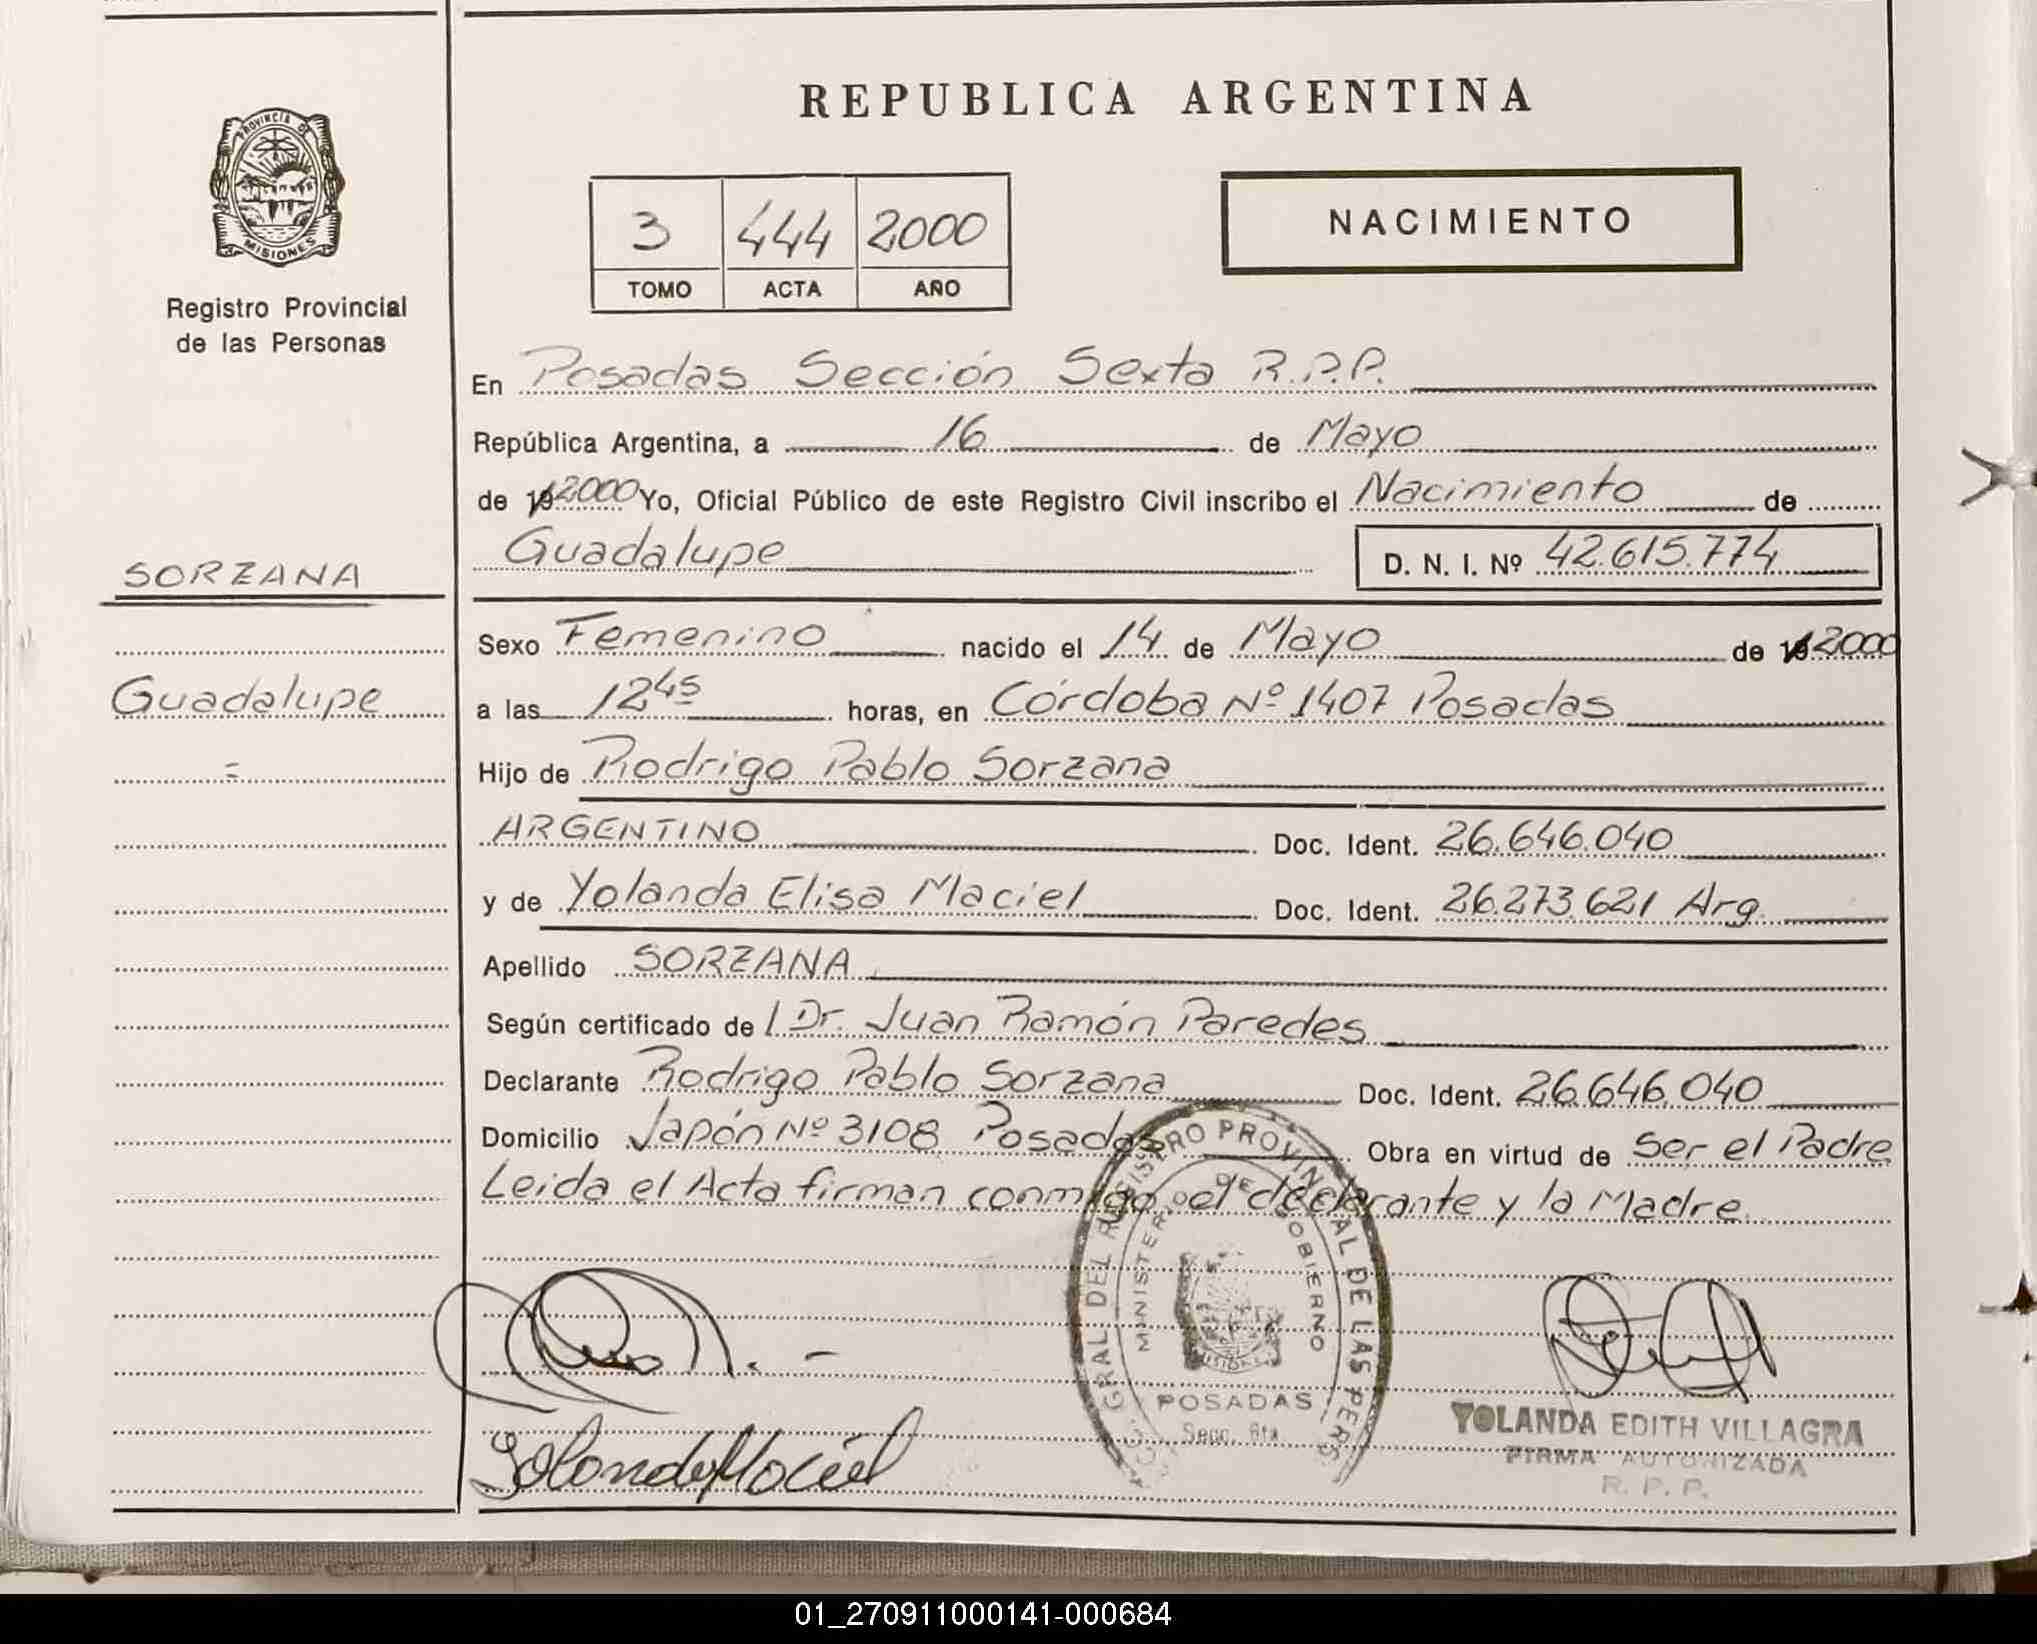 REPUBLICA ARGENTINA
PROVINCIA DE
MISIONES
Registro Provincial
de las Personas
3 444 2000
TOMO ACTA AÑO
NACIMIENTO
En Posadas Sección Sexta R.P.P.
República Argentina, a 16 de Mayo
de 19 2000 Yo, Oficial Público de este Registro Civil inscribo el Nacimiento de
Guadalupe D. N. I. Nº 42.615.774
SORZANA
Sexo Femenino nacido el 14 de Mayo de 19 2000
Guadalupe
a las 12 45 horas, en Córdoba Nº 1407 Posadas
Hijo de Rodrigo Pablo Sorzana
ARGENTINO Doc. Ident. 26.646.040
y de Yolanda Elisa Maciel Doc. Ident. 26.273.621 Arg.
Apellido SORZANA
Según certificado de l Dr. Juan Ramón Paredes
Declarante Rodrigo Pablo Sorzana Doc. Ident. 26.646.040
Domicilio Japón Nº 3108 Posadas Obra en virtud de Ser el Padre
Leida el Acta firman conmigo el declarante y la Madre
GRAL DEL REGISTRO PROVINCIAL DE LAS PERS
MINISTERIO DE GOBIERNO
MISIONES
POSADAS
Secc. 6ta
Yolanda Maciel
YOLANDA EDITH VILLAGRA
FIRMA AUTORIZADA
R. P. P.
01_270911000141-000684